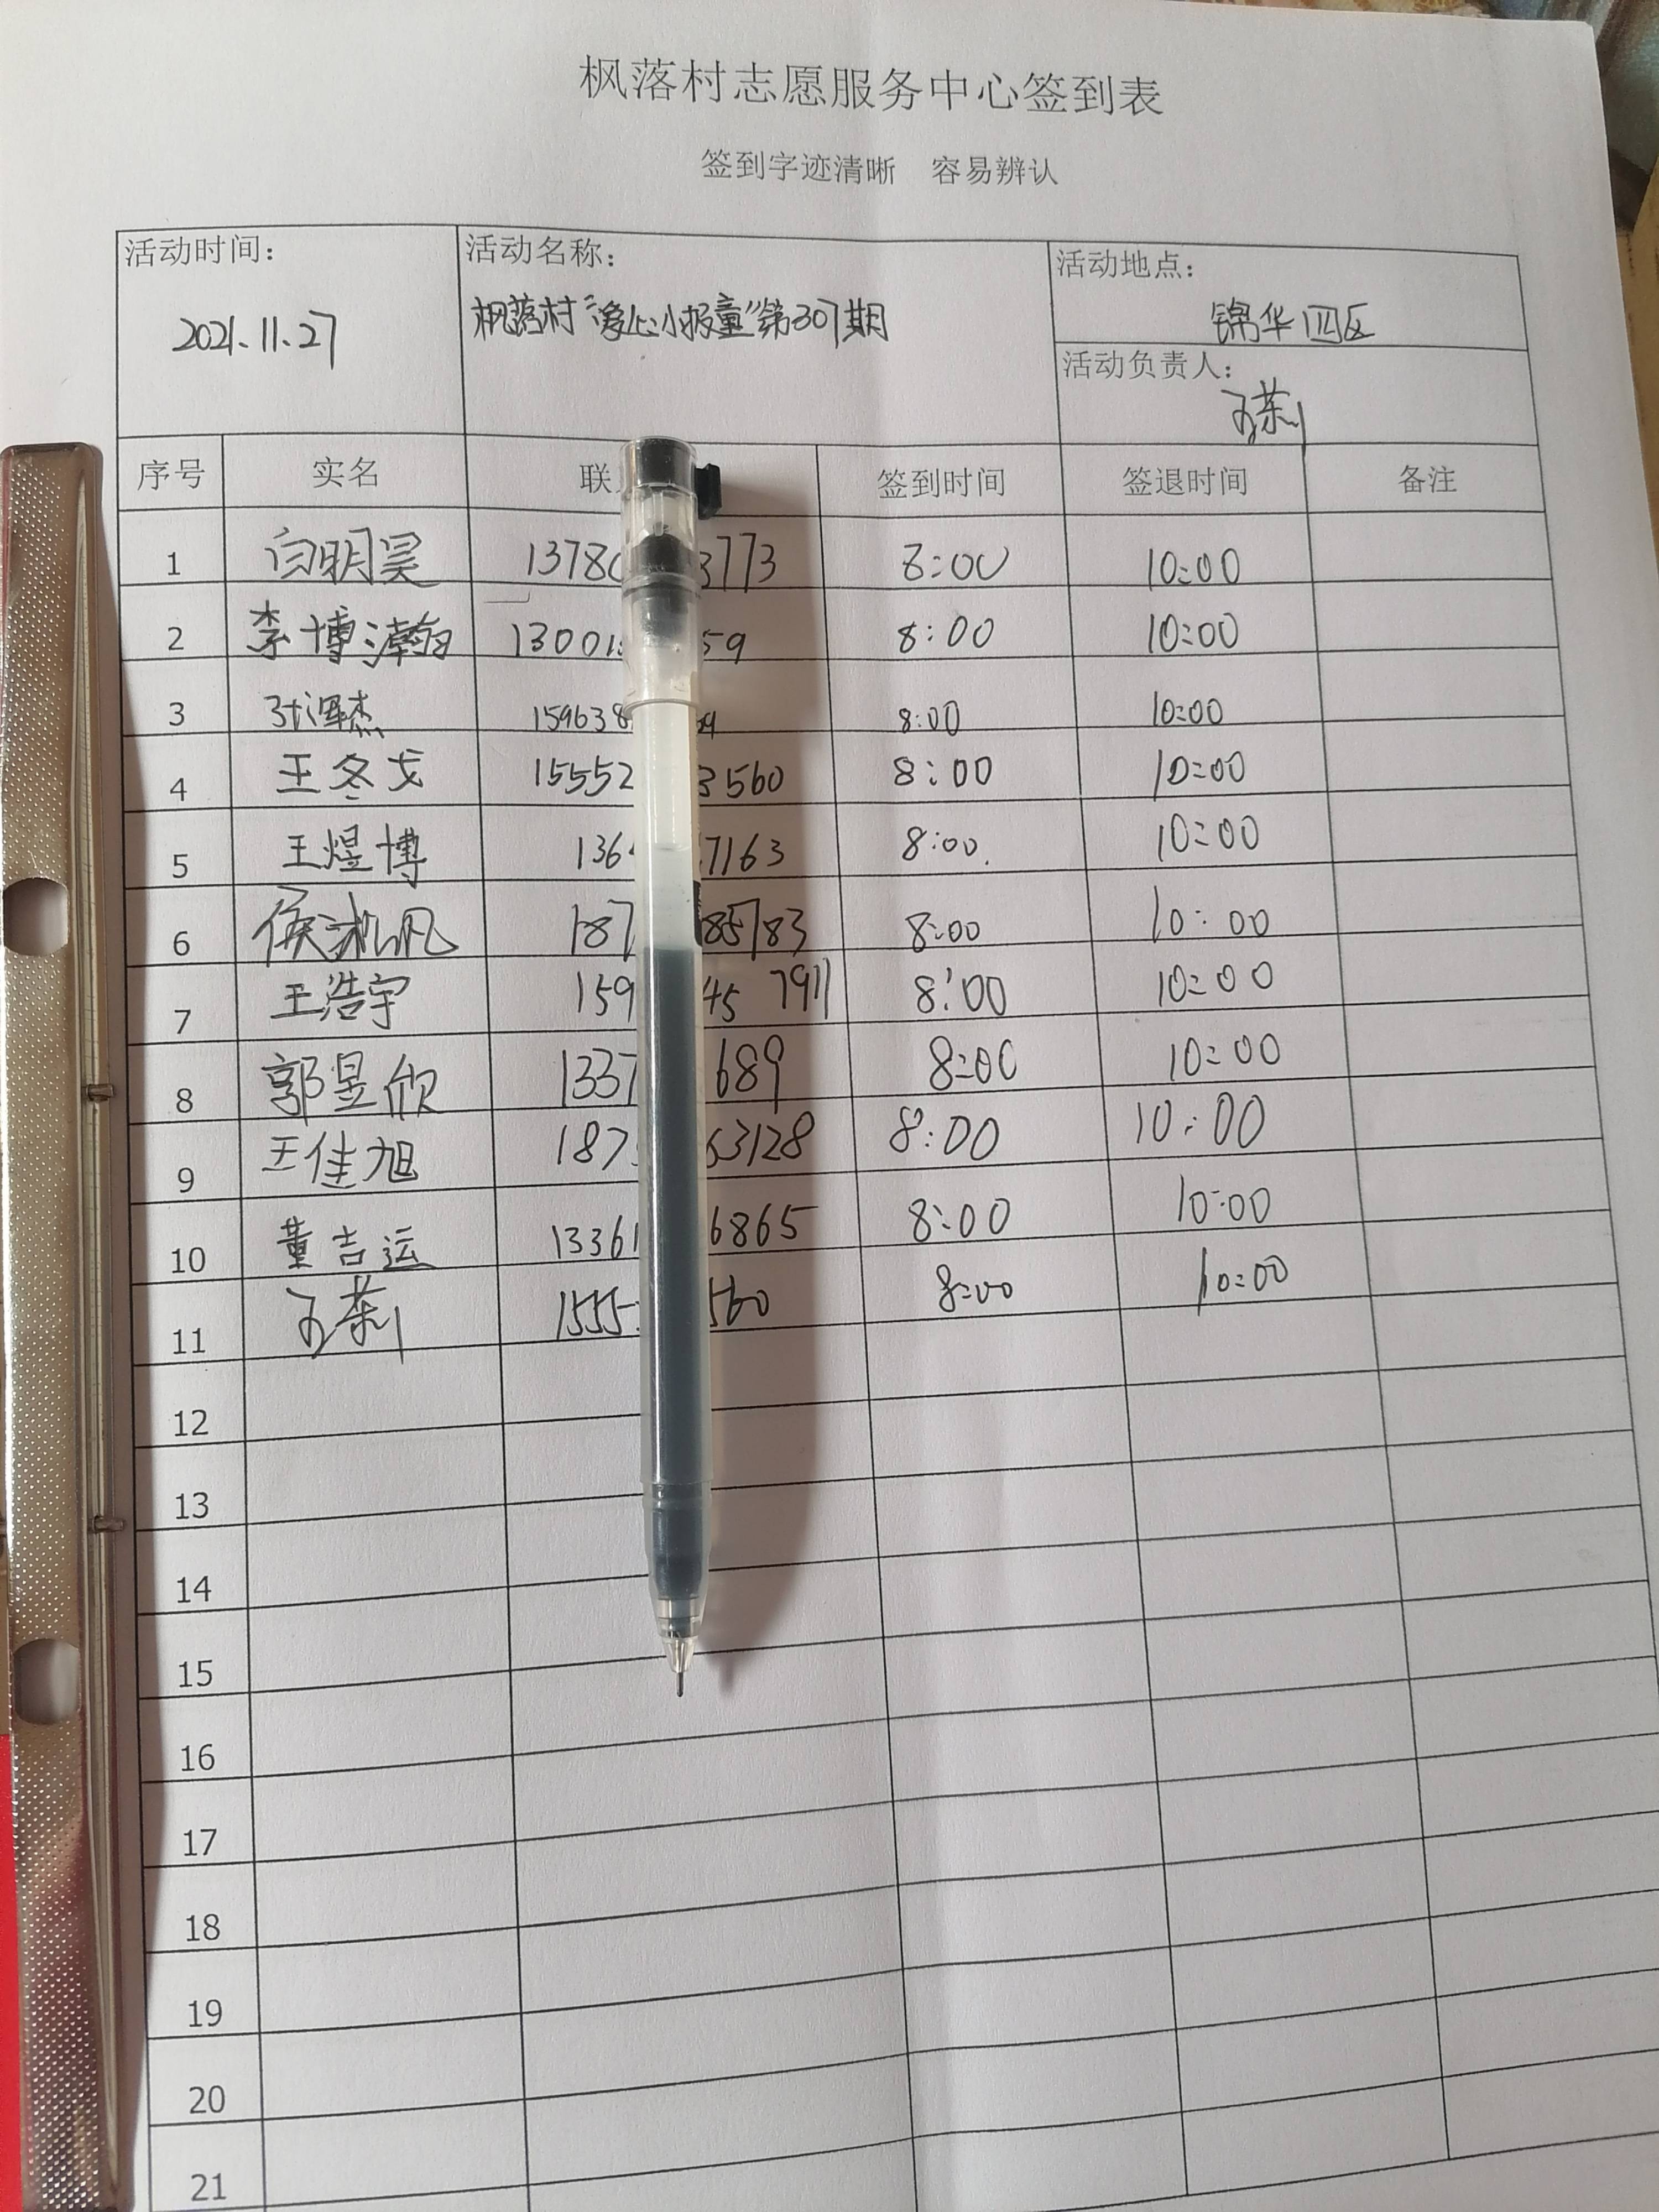 枫落村志愿服务中心签到表
签到字迹清晰 容易辨认
活动时间: 活动名称: 活动地点:
2021.11.27 枫落村"爱上小报童"第307期 锦华四区
活动负责人:
序号 实名 联 签到时间 签退时间 备注
1 白明昊 1378 3773 8:00 10:00
2 李博瀚 13001 59 8:00 10:00
3 159638 8:00 10:00
4 王冬戈 15552 3560 8:00 10:00
5 王煜博 136 7163 8:00 10:00
6 侯 187 85783 8:00 10:00
7 王浩宇 159 45 7911 8:00 10:00
8 郭昱欣 1337 689 8:00 10:00
9 王佳旭 187 63128 8:00 10:00
10 董吉运 13361 6865 8:00 10:00
11 1555 560 8:00 10:00
12
13
14
15
16
17
18
19
20
21